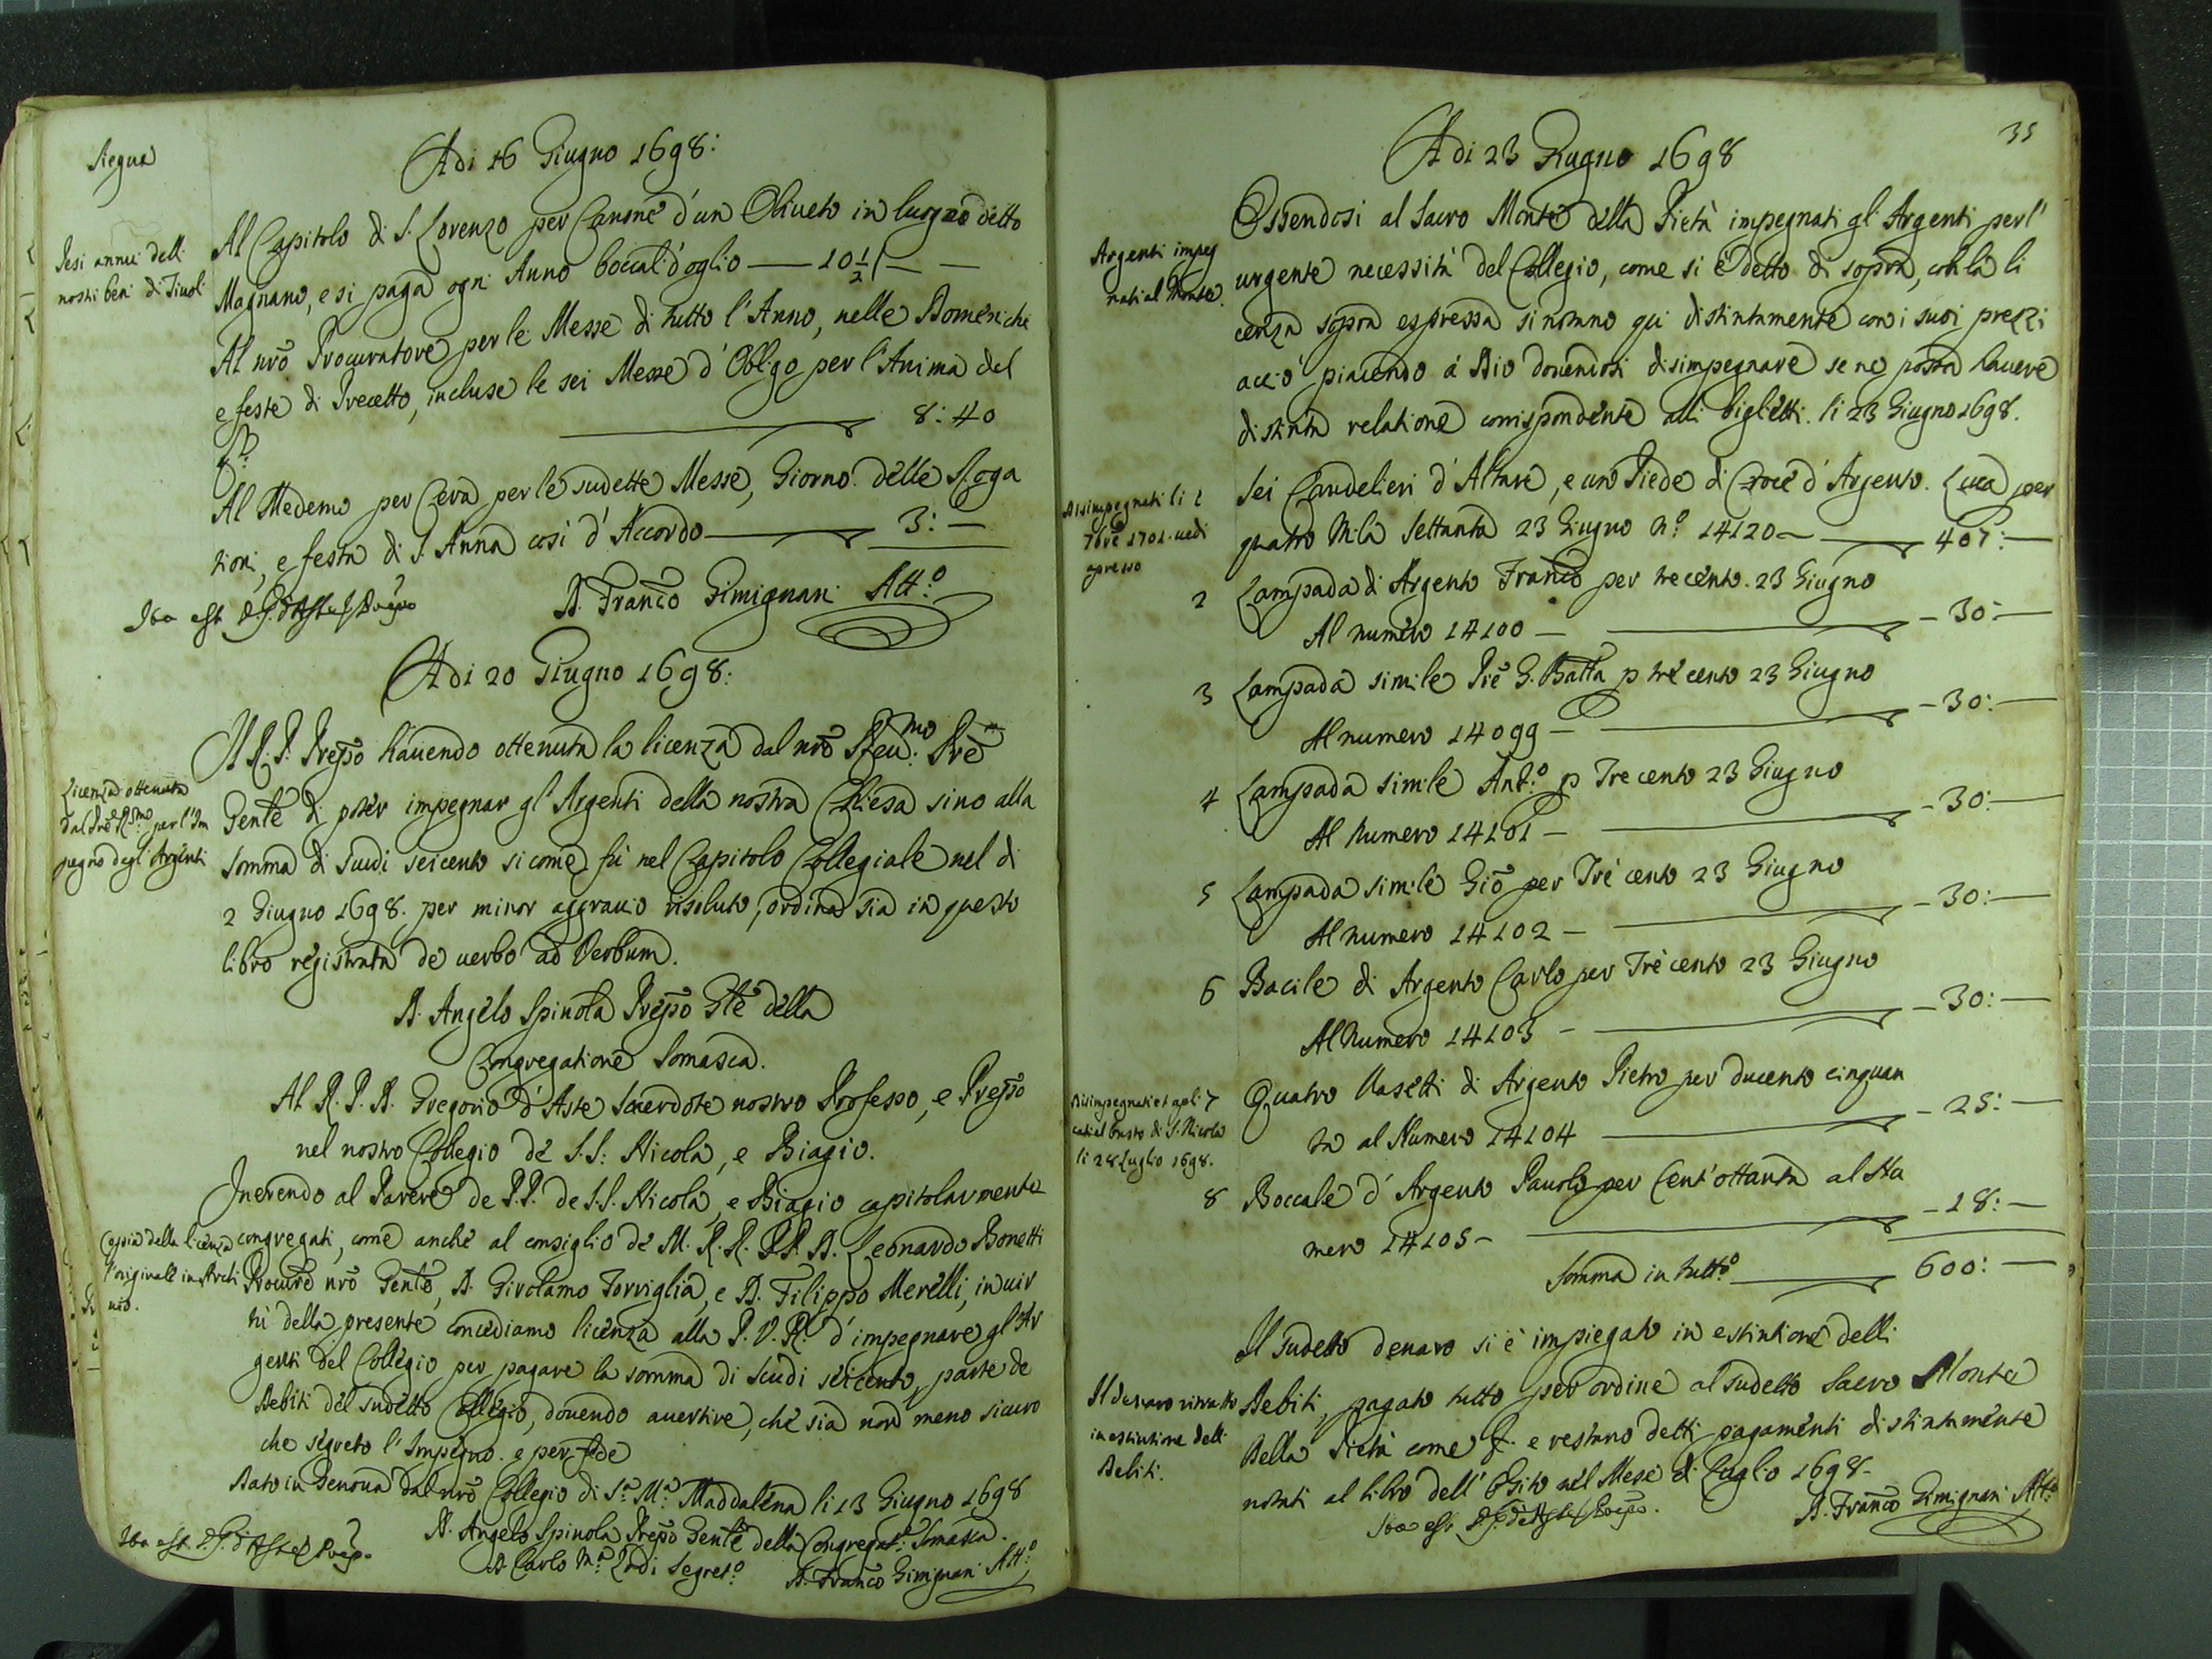 Siegue
Adi 16 Giugno 1698:
Pesi annui delli
nostri beni di Tiuoli
Al Capitolo di S. Lorenzo per Canone d'un Oliueto in luogo detto
Magnano, e si paga ogni Anno boccali d'oglio — 10 1/2 — —
Al nrõ Procuratore per le Messe di tutto l'Anno, nelle Domeniche
e feste di Precetto, incluse le sei Messe d'Obligo per l'Anima del
8: 40
Al Medemo per Cera per le sudette Messe, Giorno delle Roga
tioni, e festa di S. Anna così d'Accordo — 3: —
D. Franco Gimignani Att.º
Ita est D. G. d'Aste Prepõ
Adi 20 Giugno 1698:
Licenza ottenuta
dal Prẽ Rmo per l'Im
pegno degl'Argenti
Il R. P. Prepõ hauendo ottenuta la licenza dal nrõ Reu.mo Prẽ
Genle di poter impegnar gl'Argenti della nostra Chiesa sino alla
somma di scudi seicento si come fù nel Capitolo Collegiale nel di
2 Giugno 1698. per minor aggrauio risoluto, ordina sia in questo
libro registrata de uerbo ad Verbum.
D. Angelo Spinola Prepõ Gñle della
Congregatione Somasca.
Al R. P. D. Gregorio d'Aste Sacerdote nostro Professo, e Prepõ
nel nostro Collegio de S.S. Nicola, e Biagio.
Copia della licenza
l'originale in Archi
uio.
Inerendo al Parere de P.P. de S.S. Nicola, e Biagio capitolarmente
congregati, come anche al consiglio de M. R. R. P.P. D. Leonardo Bonetti
Procurẽ nrõ Genle, D. Girolamo Torriglia, e D. Filippo Merelli, in uir
tù della presente concediamo licenza alla P. V. R. d'impegnare gl'Ar
genti del Collegio per pagare la somma di scudi seicento, parte de
Debiti del sudetto Collegio, douendo auertire, che sia non meno sicuro
che segreto l'Impegno. e per fede
Dato in Genoua dal nrõ Collegio di S.ª M.ª Maddalena li 13 Giugno 1698
D. Angelo Spinola Prepõ Genle della Congregat.e Somasca.
D. Carlo M.ª Lodi Segret.º
D. Franco Gimignani Att.º
Ita est. D. G. d'Aste Prepõ
35
Adi 23 Giugno 1698
Argenti impeg
nati al Monte.
Essendosi al Sacro Monte della Pietà impegnati gl'Argenti per l'
urgente necessità del Collegio, come si è detto di sopra, con la li
cenza sopra espressa si notano qui distintamente con i suoi prezzi
acciò piacendo à Dio douendosi disimpegnare se ne possa hauere
distinta relatione corrispondente alli biglietti. li 23 Giugno 1698.
Disimpegnati li 1
7bre 1701. uedi
apresso
Sei Candelieri d'Altare, e un Piede di Croce d'Argento. Luca per
quatro mila settanta 23 Giugno N.º 14120 — 407: —
2 Lampada di Argento Franco per trecento. 23 Giugno
Al numero 14100 — 30: —
3 Lampada simile Piẽ G. Batta p trecento 23 Giugno
Al numero 14099 — 30: —
4 Lampada simile Ant.º p Trecento 23 Giugno
Al Numero 14101 — 30: —
5 Lampada simile Giõ per Tre cento 23 Giugno
Al numero 14102 — 30: —
6 Bacile di Argento Carlo per Trecento 23 Giugno
Al Numero 14103 — 30: —
Disimpegnati et apli
cati al busto di S. Nicola
li 28 Luglio 1698.
7 Quatro Vasetti di Argento Pietro per ducento cinquan
ta al Numero 14104 — 25: —
8 Boccale d'Argento Pauolo per Cent'ottanta al Nu
mero 14105 — 18: —
Somma in tutto — 600: —
Il denaro ritratto
in estintione delli
Debiti.
Il sudetto denaro si è impiegato in estintione delli
Debiti, pagato tutto per ordine al sudetto Sacro Monte
della Pietà come f. e restano detti pagamenti distintamente
notati al libro dell'Esito nel Mese di Luglio 1698.
Ita est D. G. d'Aste Prepõ.
D. Franco Gimignani Att.º